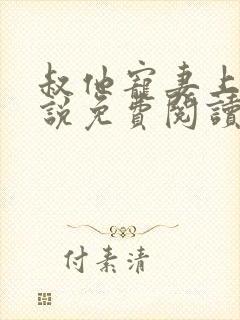 叔他寵妻上
說免費閱讀
付素清